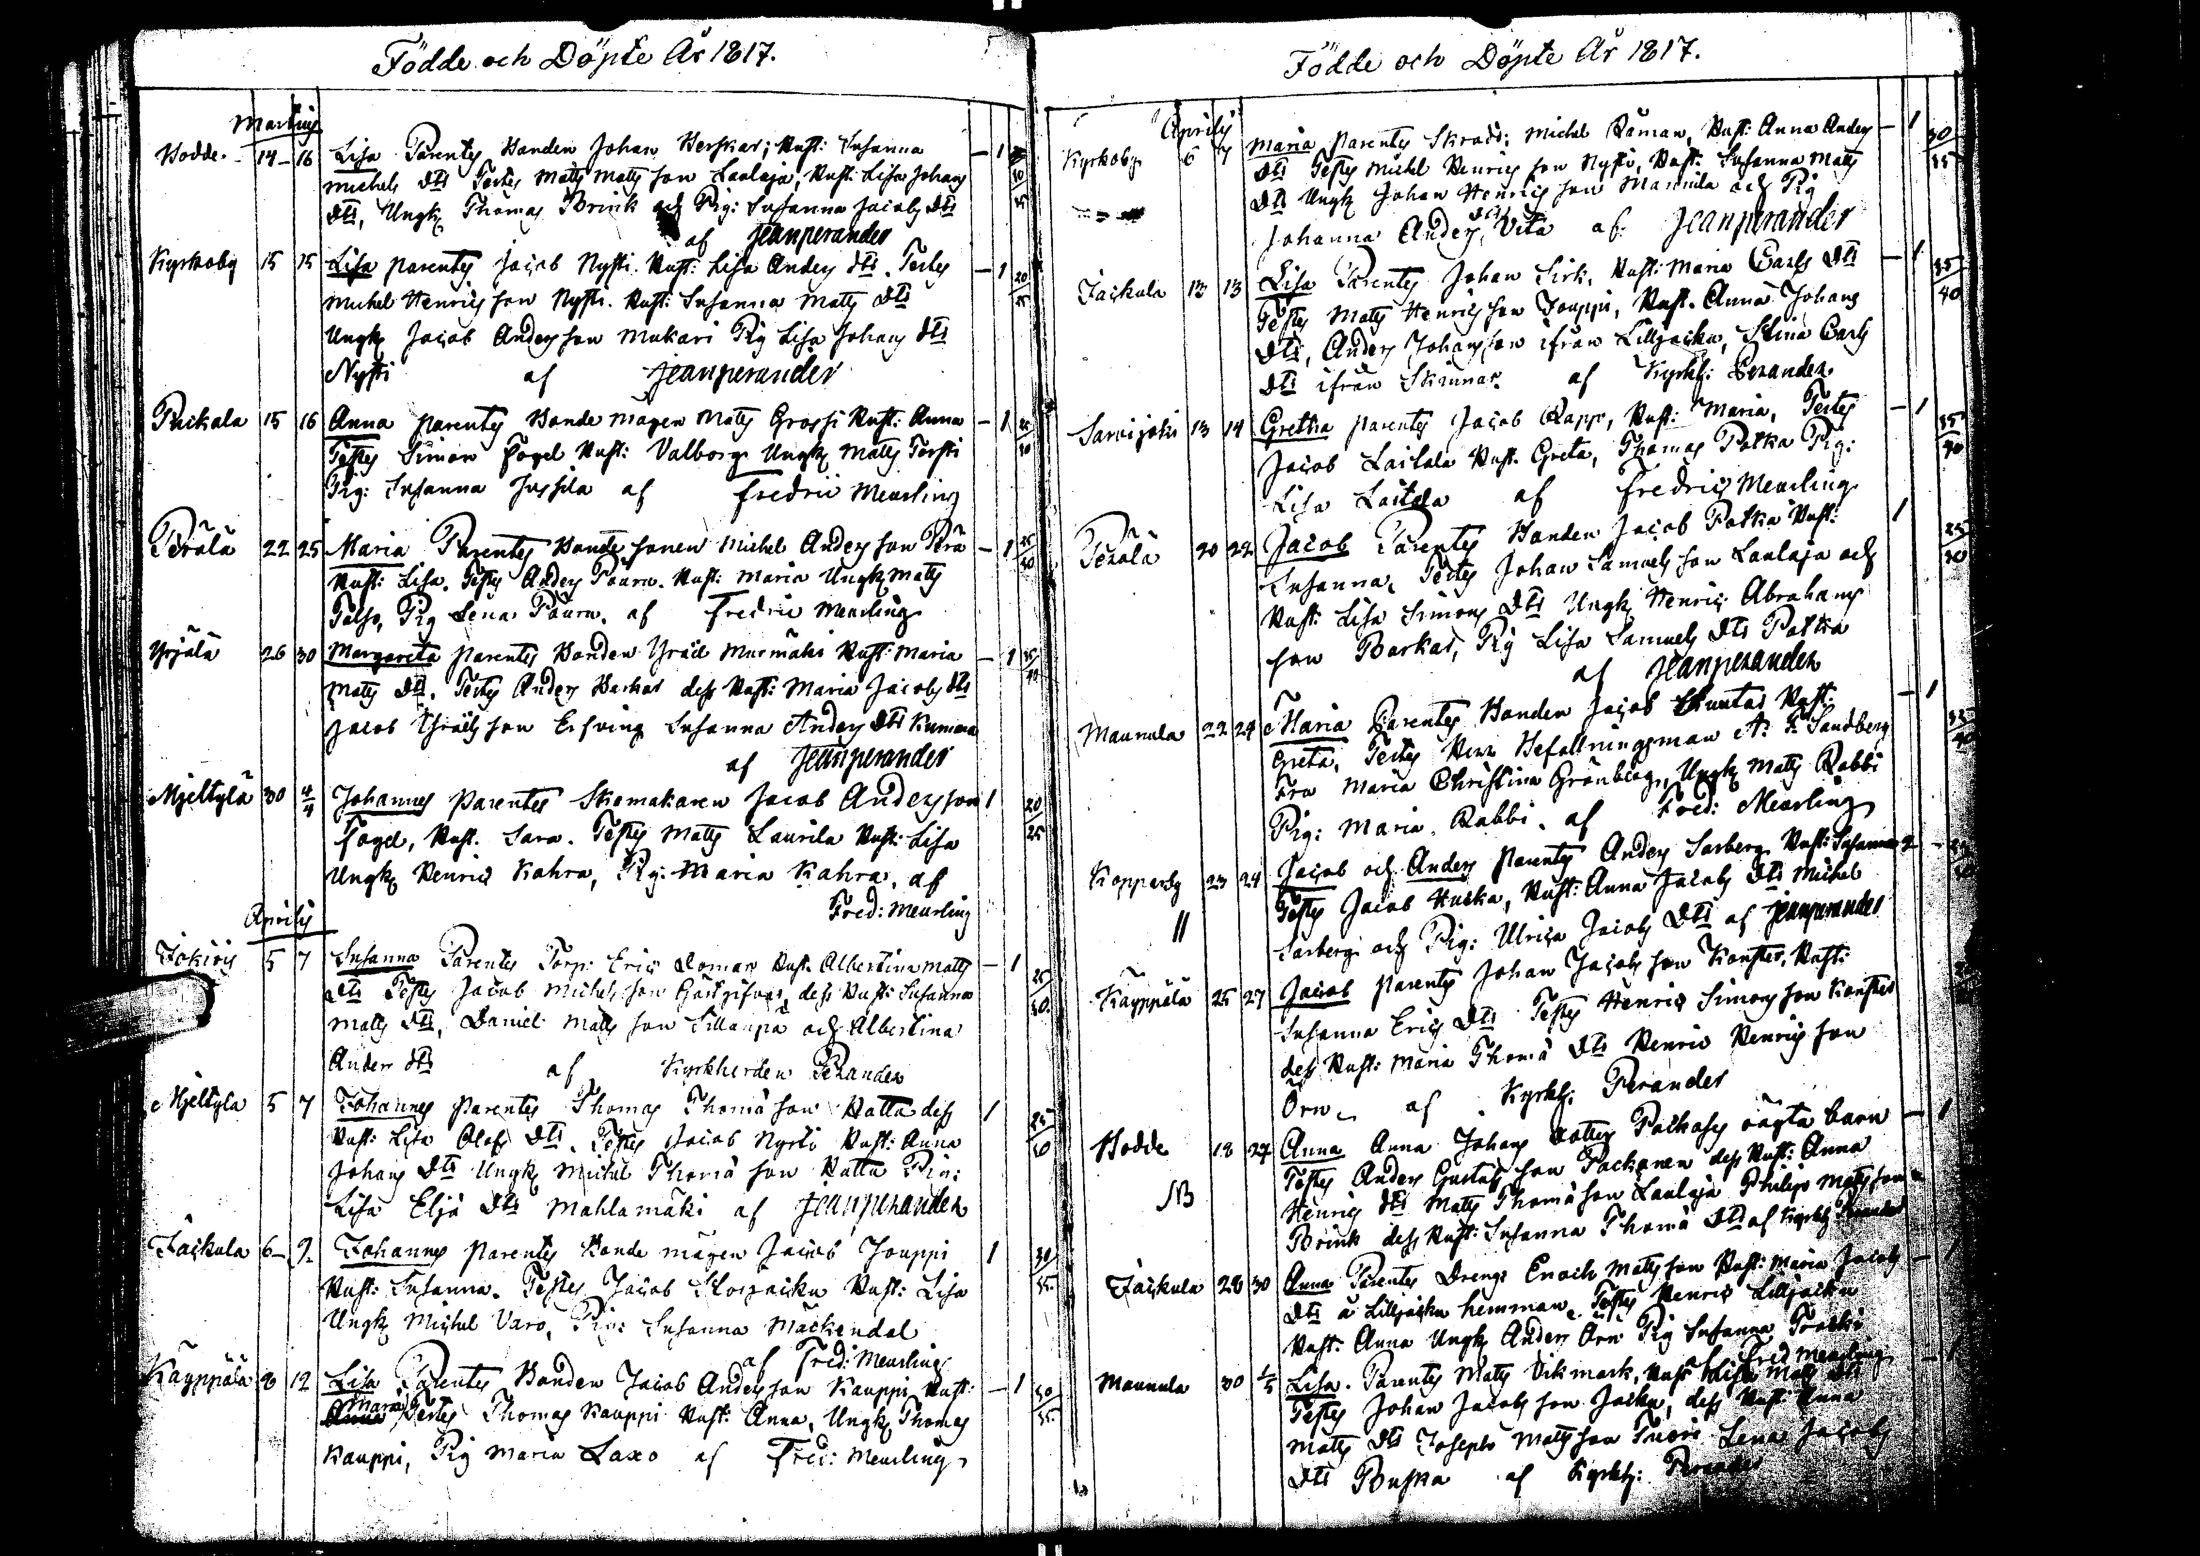 Födde och Döpte År 1817.
Martius
Hodde. - 14 - 16 Lisa Parentes Bonden Johan Herskar; Hust: Susanna — 1
Michels Dtr Testes Matts Matts son Laulaja, Hust: Lisa Johans 30/35
Dtr, Ungk Thomas Brink och Pig: Susanna Jacobs Dtr
af Jean perander
Kyrkoby 15 15 Lisa parentes Jacob Nysti. Hust: Lisa Anders dtr. Testes — 1 20/25
Michel Henrics son Nysti. Hust: Susanna Matts Dtr
Ungk Jacob Anders son Mukari Pig Lisa Johans dtr
Nysti af Jean perander
15 16 Anna parentes Bonde mågen Matts Grossi Hust: Anna — 1
Testes Simon Fogel Hust: Valborg Ungk Matts Torsti
Pig: Susanna Jussila af Fredric Meurling
Perälä 22 25 Maria Parentes Bonde sonen Michel Anders son Perä — 1 25/30
Hust: Lisa. Testes Anders Påurn. Hust: Maria Ungk Matts
Pig Lena Påurn. af Fredric Meurling
Yrjälä 26 30 Margareta parentes Bonden Yräil Murmäki Hust: Maria — 1 35/40
Matts Dtr. Testes Anders Harkas dess Hust: Maria Jacobs dtr
Jacob Yräils son Erfving Susanna Anders Dtr
af Jean perander
Mjeltylä 30 4/4 Johannes parentes Skomakaren Jacob Anders son 1 20/25
Fogel, Hust. Sara. Testes Matts Laurila Hust: Lisa
Ungk Henric Kahra, Pig: Maria Kahra. af
Fred: Meurling
Aprilis
5 7 Susanna Parentes Torp: Eric Domar Hust. Albertina Matts — 1 25/30
dtr Testes Jacob Michels son Gästgifvars, dess Hust: Susanna
Matts Dtr, Daniel Matts son Sillanpä och Albertina
Anders dtr af Kyrkherden Perander
Mjeltyla 5 7 Johannes parentes Thomas Thomä son Hatta dess 1 25/30
Hust: Lisa Olofs Dtr. Testes Jacob Nysti Hust: Anna
Johans Dtr Ungk Michel Thomä son Hatta Pig:
Lisa Eljä Dtr Mahlamäki af Jean perander
Jäckula 6 - 9 Johannes parentes Bonde mågen Jacob Jouppi 1 30/35
Hust: Susanna. Testes Jacob Storjäcku Hust: Lisa
Ungk Michel Varo, Pig: Susanna Mäckendal
af Fred: Meurling
Käyppälä 8 12 Lisa Parentes Bonden Jacob Anders son Kauppi Hust: — 1 30/35
Maria Testes Thomas Kauppi Hust: Anna, Ungk Thomas
Kauppi, Pig Maria Laxo af Fred: Meurling
Födde och Döpte År 1817.
Aprilis
Kyrkoby 6 7 Maria parentes Skradd: Michel Råman, Hust: Anna Anders — 1 30/35
Dtr Testes Michel Henrics son Nysti, Hust: Susanna Matts
Dtr Ungk Johan Henrics son Mannila och Pig
Johanna Anders dtr Vitä af: Jean perander
Jäckula 13 13 Lisa Parentes Johan Sirk. Hust: Maria Carls Dtr — 1 35/40
Testes Matts Henrics son Jouppi, Hust. Anna Johans
Dtr, Anders Johans son ifrån Lilljäcku, Stina Carls
Dtr ifrån Skinnar af Kyrkh: Perander
Sarvijoki 13 14 Gretha parentes Jacob Rapp, Hust: Maria, Testes — 1 35/40
Jacob Laitala Hust. Greta, Thomas Potka Pig:
Lisa Laitala af Fredric Meurling
Perälä 20 22 Jacob Parentes Bonden Jacob Potka Hust: 1 25/30
Susanna, Testes Johan Samuels son Laulaja och
Hust: Lisa Simons Dtr Ungk Henric Abrahams
son Barkar, Pig Lisa Samuels Dtr Potka
af Jean perander
Maunula 22 24 Maria Parentes Bonden Jacob Hust: — 1
Greta, Testes Herr Befallningsman A: F: Sandberg
Fru Maria Christina Grönberg, Ungk Matts Rabbi
Pig: Maria Rabbi. af Fred: Meurling
Kopparby 23 24 Jacob och Anders parentes Anders Sarberg Hust: Susanna 2 —
" Testes Jacob Huska, Hust: Anna Jacobs Dtr Michel
Sarberg och Pig: Ulrica Jacobs Dtr af Jean perander
Käyppälä 25 27 Jacob parentes Johan Jacobs son Konster, Hust:
Susanna Erics Dtr Testes Henric Simons son Konster
dess Hust: Maria Thomä Dtr Henric Henrics son
Örn af Kyrkh: Perander
Hodde 18 27 Anna Anna Johans dotters oägta barn — 1
NB Testes Anders Gustafs son Packanen dess Hust: Anna
Henrics dtr Matts Thomä son Laulaja Philip Matts son
Brink dess Hust: Susanna Thomä Dtr af Kyrkh Perander
Jäckula 28 30 Anna Parentes Dreng: Enoch Matts son Hust: Maria Jacobs — 1
Dtr å Lilljäcku hemman. Testes Henric Lilljäcku
Hust: Anna Ungk Anders Örn Pig Susanna
Fred Meurling
Maunula 30 1/5 Lisa. Parentes Matts Vikmark, Hust Lisa Matts dtr — 1
Testes Johan Jacobs son Jäcku, dess Hust: Anna
Matts Dtr Joseph Matts son Tuori Lena Jacobs
Dtr Buska af Kyrkh: Perander